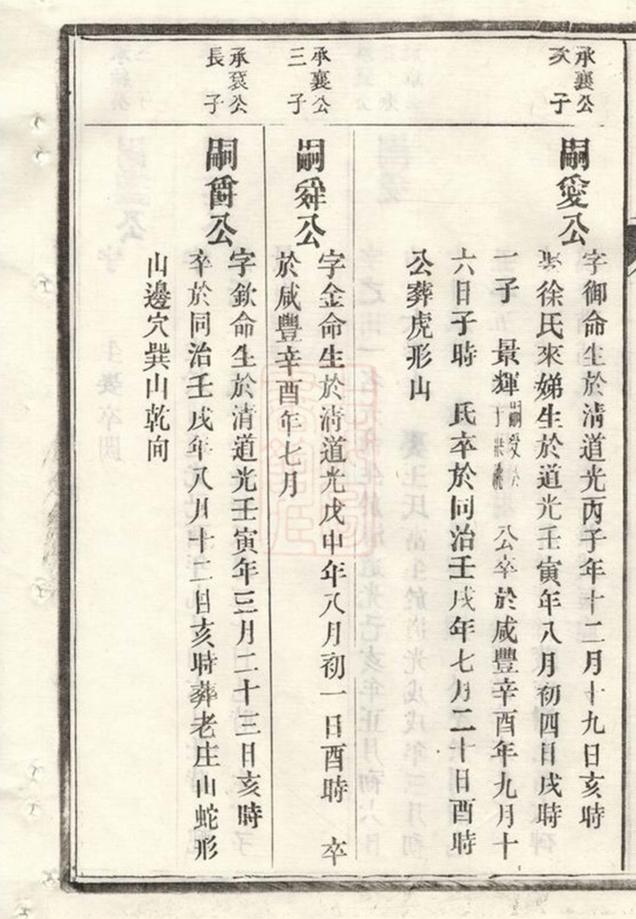 承襄公
次子
嗣愛公
字御命生於清道光丙子年十二月十九日亥時
娶徐氏來娣生於道光壬寅年八月初四日戌時
一子 景輝 公卒於咸豐辛酉年九月十
六日子時 氏卒於同治壬戌年七月二十日酉時
公葬虎形山
承襄公
三子
嗣舜公
字金命生於清道光戊申年八月初一日酉時 卒
於咸豐辛酉年七月
承袞公
長子
嗣爵公
字欽命生於清道光壬寅年三月二十三日亥時
卒於同治壬戌年八月十二日亥時葬老庄山蛇形
山邊穴巽山乾向